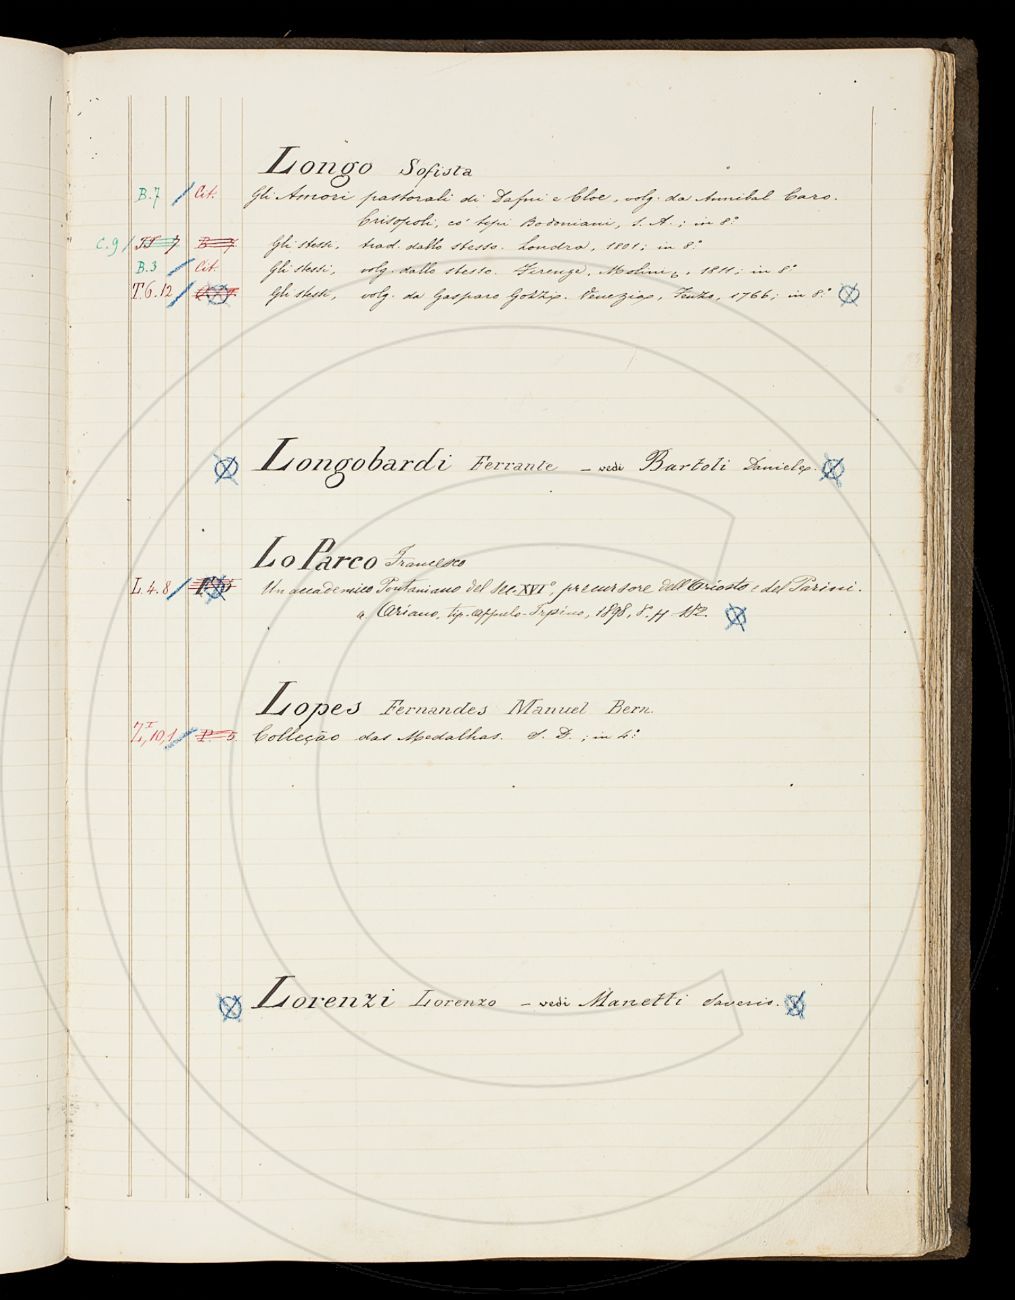 Longo Sofista
B.7 / Cit. Gli Amori pastorali di Dafni e Cloe, volg. da Annibal Caro.
Crisopoli, co' tipi Bodoniani, S. A.; in 8.°
C.9 / Gli stessi, trad. dallo stesso. Londra, 1801; in 8.°
B.3 / Cit. Gli stessi, volg. dallo stesso. Firenze, Molini, 1811; in 8.°
T.6.12 / Gli stessi, volg. da Gasparo Gozzi. Venezia, Fenzo, 1766; in 8.°
Longobardi Ferrante – vedi Bartoli Daniele.
Lo Parco Francesco
L.4.8 / Un accademico Pontaniano del sec. XVI°, precursore dell'Ariosto e del Parini.
Ariano, tip. Appulo-Irpino, 1898, 8.° pp 182.
Lopes Fernandes Manuel Bern.
Z,I 10,1 / P. 5 Colleção das Medalhas. S. D.; in 4.°
Lorenzi Lorenzo – vedi Manetti Saverio.